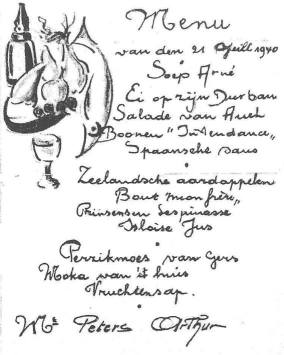 Menu
van den 21 April 1940
Soep Arné
Ei op zijn Durban
Salade van Auch
Boonen "Intendance"
Spaansche saus
Zeelandsche aardappelen
Bout "mon frère"
Prinsensen Lespinasse
Isloise Jus
Perzikmoes van Gers
Moka van 't huis
Vruchtensap.
Mr Peters Arthur